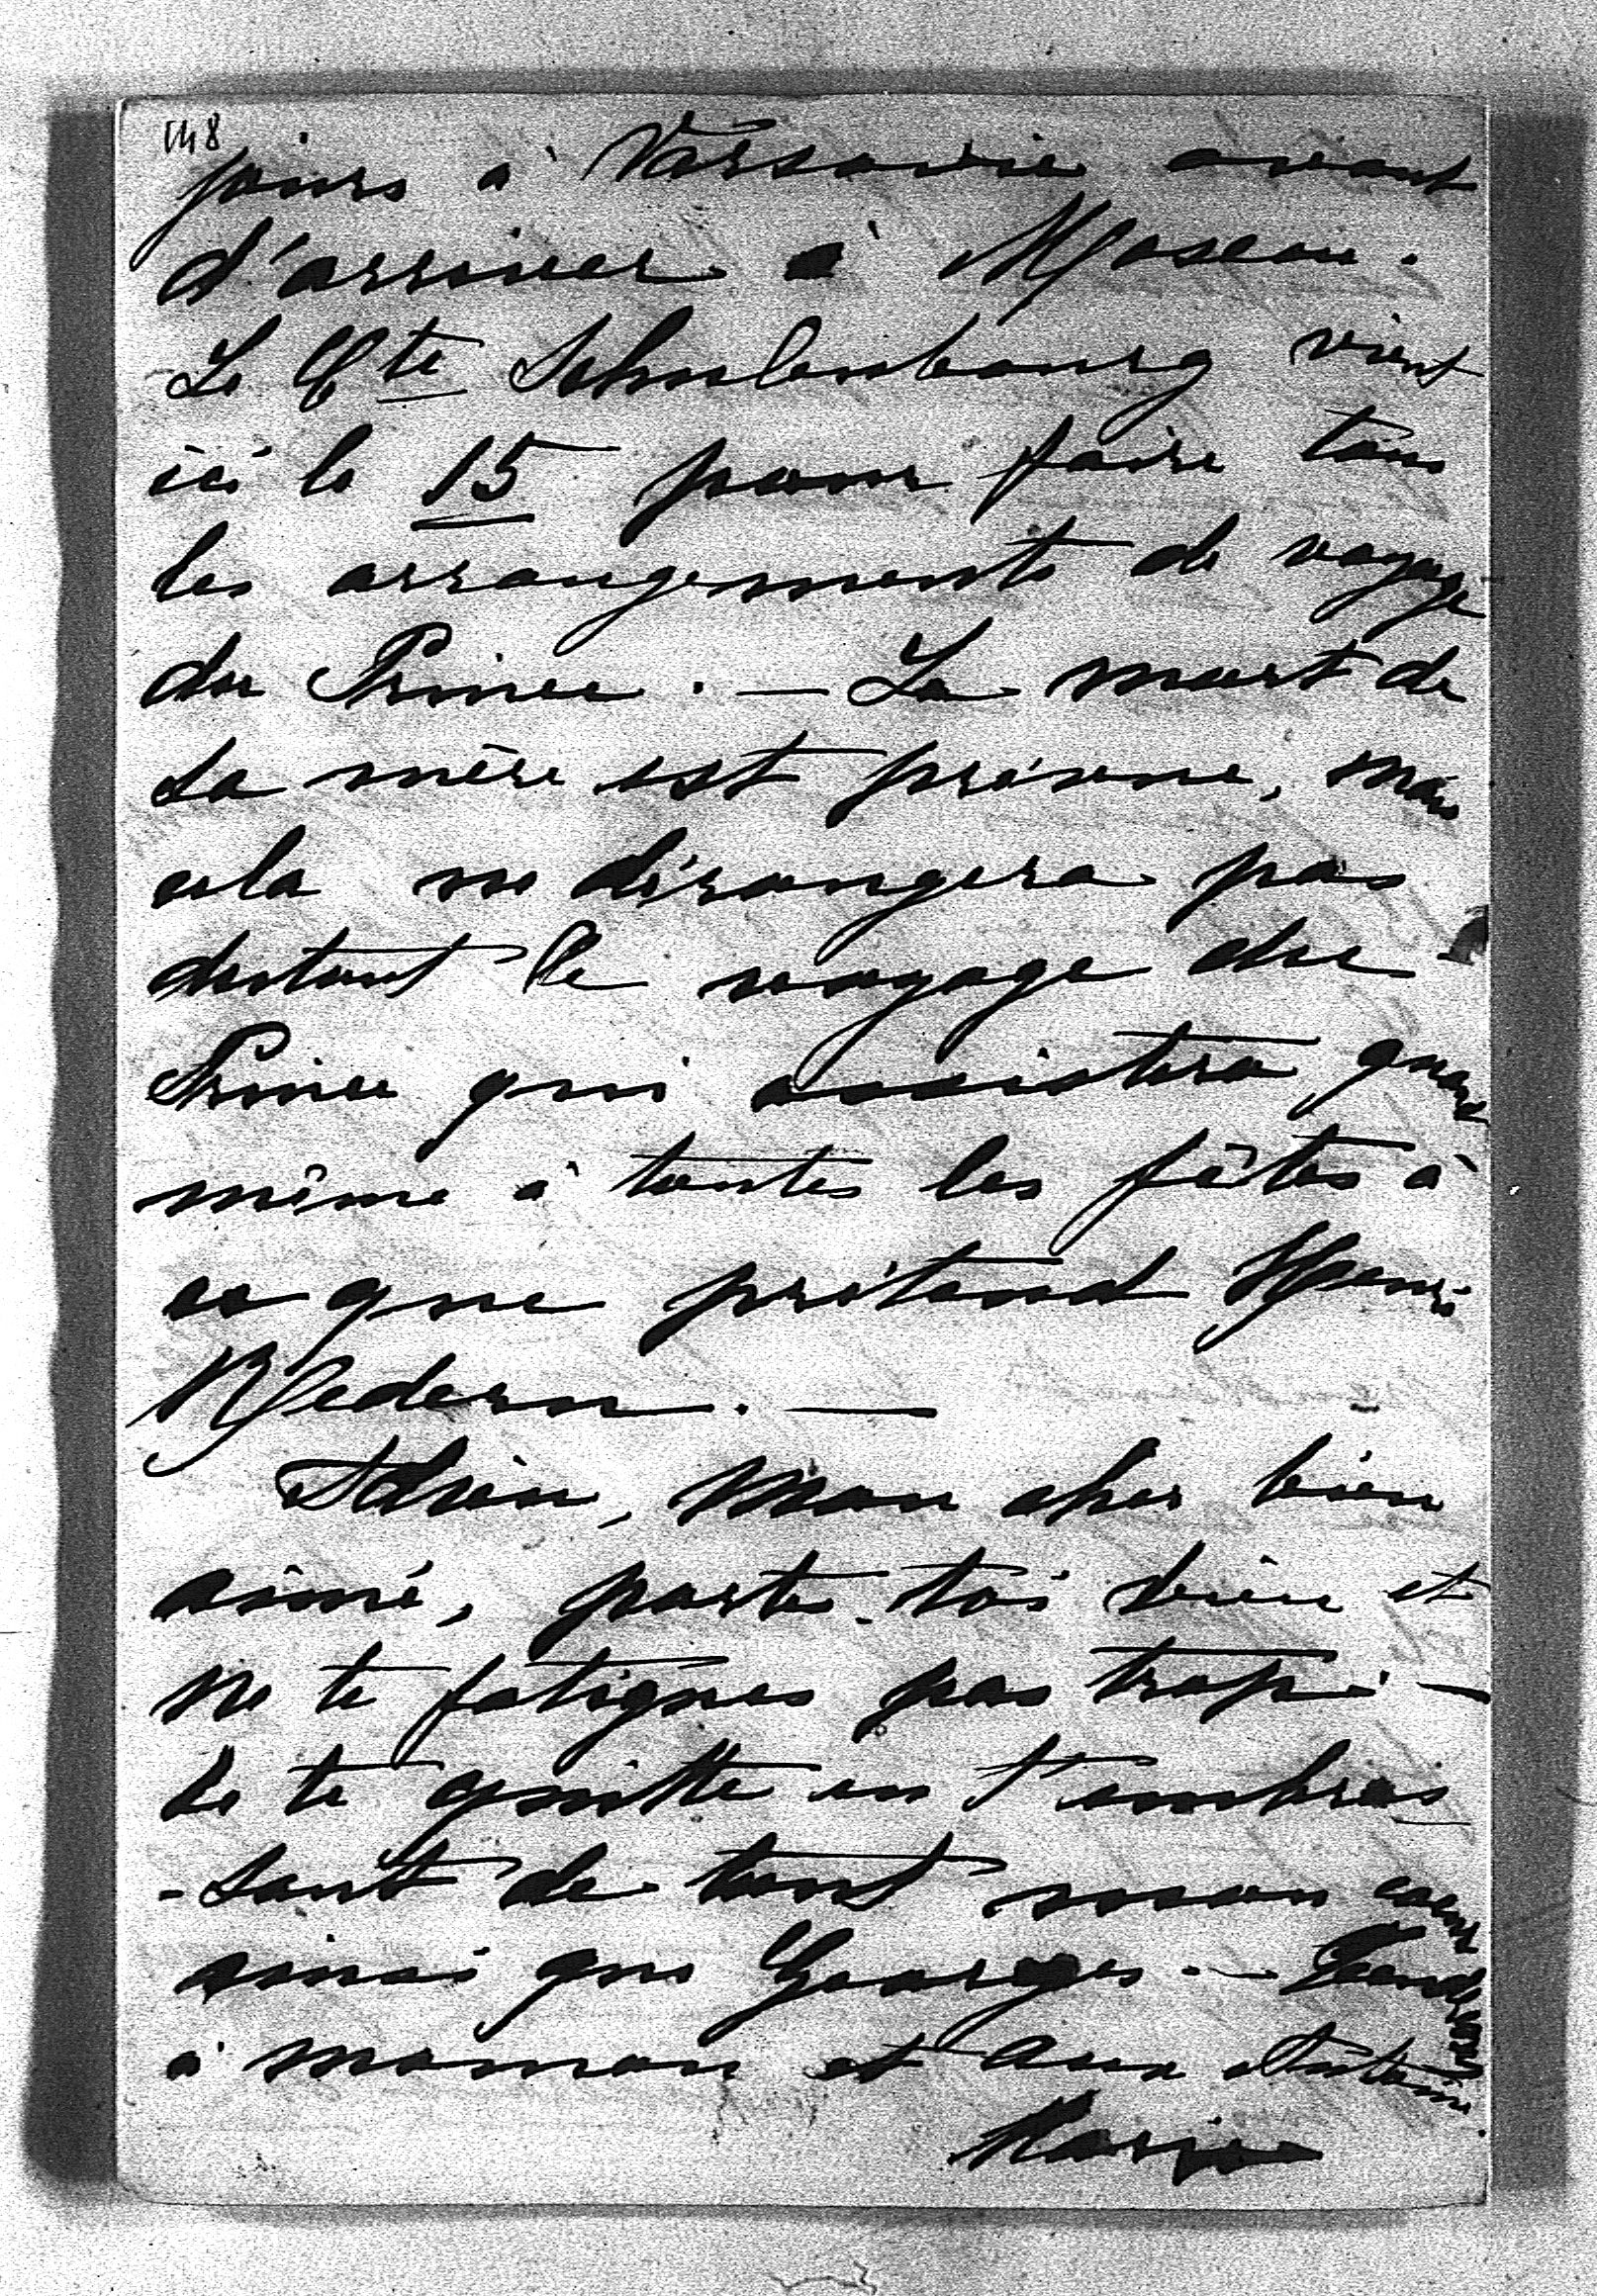 148
jours à Varsovie avant
d'arriver à Moscou.
Le Cte Schulenbourg vient
ici le 15 pour faire tous
les arrangements de voyage
du Prince. — La mort de
sa mère est prévue, mais
cela ne dérangera pas
dutout le voyage du
Prince qui assistera quand
même à toutes les fêtes à
ce que prétend Henri
Redern. —
Adieu, mon cher bien
aimé, porte-toi bien et
ne te fatigues pas trop. —
Je te quitte en t'embras
-sant de tout mon coeur
ainsi que Georges. — Tendresses
à maman et aux Antoine